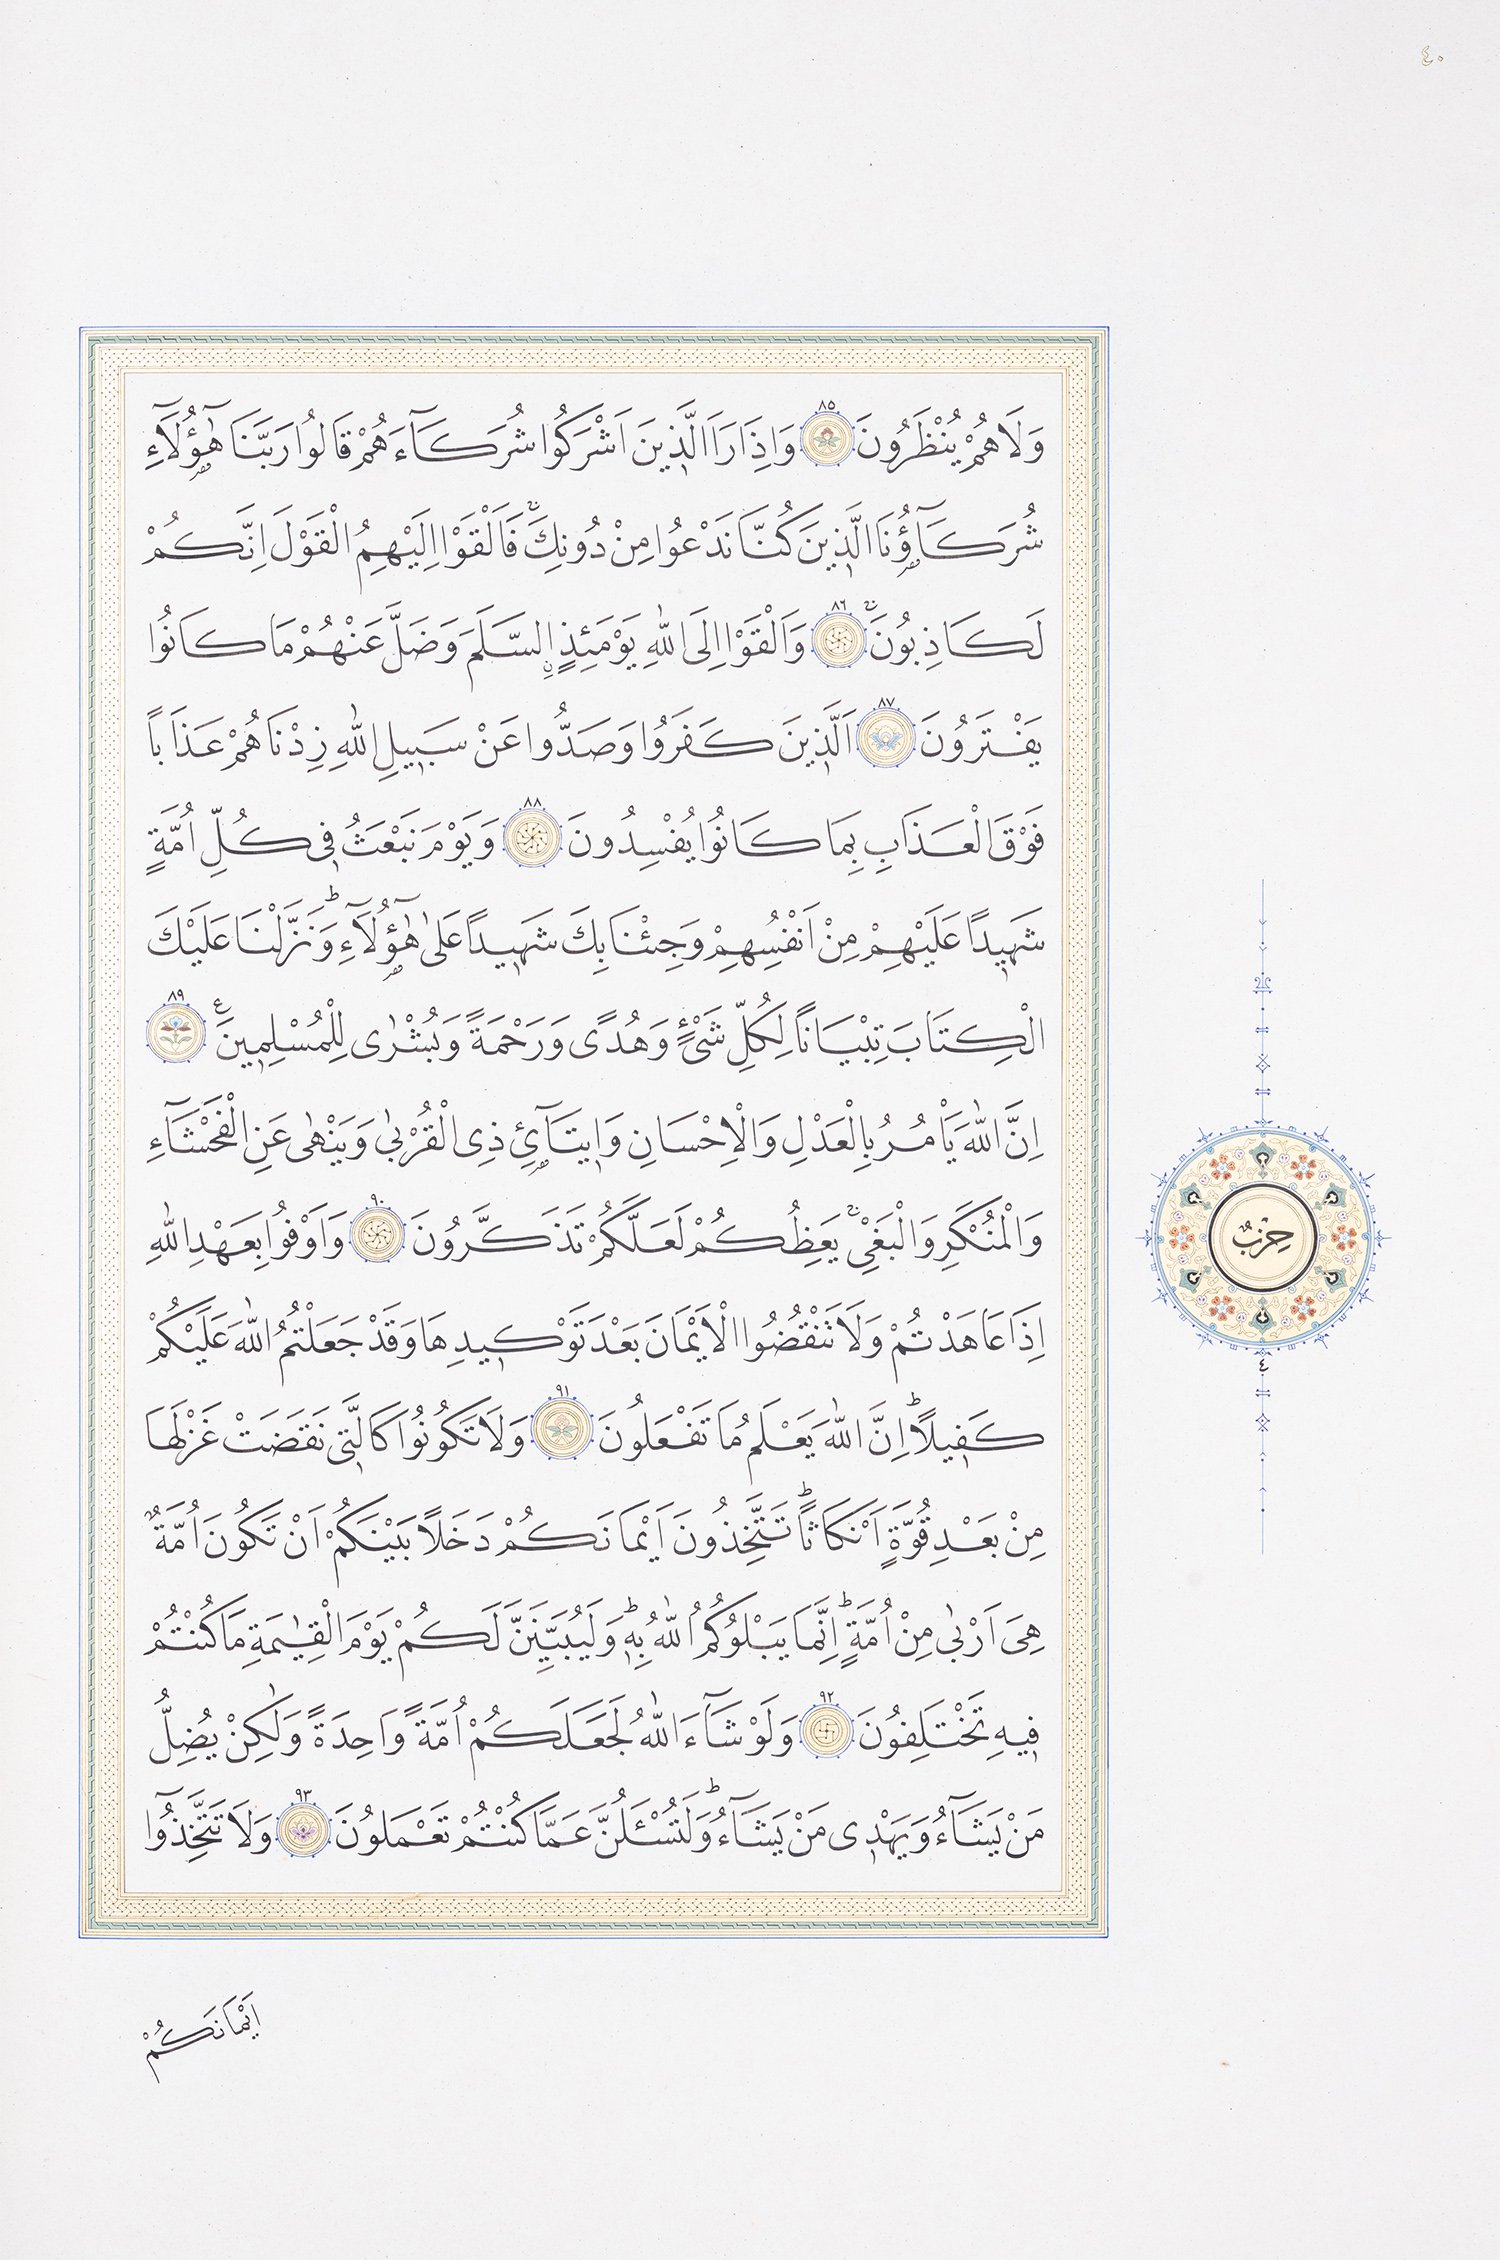 ٤٠
وَلَا هُمْ يُنْظَرُونَ ٨٥ وَاِذَا رَاَ الَّذ۪ينَ اَشْرَكُوا شُرَكَٓاءَهُمْ قَالُوا رَبَّنَا هٰٓؤُ۬لَٓاءِ
شُرَكَٓاؤُ۬نَا الَّذ۪ينَ كُنَّا نَدْعُوا مِنْ دُونِكَۚ فَاَلْقَوْا اِلَيْهِمُ الْقَوْلَ اِنَّكُمْ
لَكَاذِبُونَۚ ٨٦ وَاَلْقَوْا اِلَى اللّٰهِ يَوْمَئِذٍۨ السَّلَمَ وَضَلَّ عَنْهُمْ مَا كَانُوا
يَفْتَرُونَ ٨٧ اَلَّذ۪ينَ كَفَرُوا وَصَدُّوا عَنْ سَب۪يلِ اللّٰهِ زِدْنَاهُمْ عَذَاباً
فَوْقَ الْعَذَابِ بِمَا كَانُوا يُفْسِدُونَ ٨٨ وَيَوْمَ نَبْعَثُ ف۪ي كُلِّ اُمَّةٍ
شَه۪يدًا عَلَيْهِمْ مِنْ اَنْفُسِهِمْ وَجِئْنَا بِكَ شَه۪يدًا عَلٰى هٰٓؤُ۬لَٓاءِۜ وَنَزَّلْنَا عَلَيْكَ
الْكِتَابَ تِبْيَانًا لِكُلِّ شَيْءٍ وَهُدًى وَرَحْمَةً وَبُشْرٰى لِلْمُسْلِم۪ينَ۟ ٨٩
اِنَّ اللّٰهَ يَأْمُرُ بِالْعَدْلِ وَالْاِحْسَانِ وَا۪يتَٓائِ۬ ذِي الْقُرْبٰى وَيَنْهٰى عَنِ الْفَحْشَٓاءِ
وَالْمُنْكَرِ وَالْبَغْيِۚ يَعِظُكُمْ لَعَلَّكُمْ تَذَكَّرُونَ ٩٠ وَاَوْفُوا بِعَهْدِ اللّٰهِ
اِذَا عَاهَدْتُمْ وَلَا تَنْقُضُوا الْاَيْمَانَ بَعْدَ تَوْك۪يدِهَا وَقَدْ جَعَلْتُمُ اللّٰهَ عَلَيْكُمْ
كَف۪يلًاۜ اِنَّ اللّٰهَ يَعْلَمُ مَا تَفْعَلُونَ ٩١ وَلَا تَكُونُوا كَالَّت۪ي نَقَضَتْ غَزْلَهَا
مِنْ بَعْدِ قُوَّةٍ اَنْكَاثًاۜ تَتَّخِذُونَ اَيْمَانَكُمْ دَخَلًا بَيْنَكُمْ اَنْ تَكُونَ اُمَّةٌ
هِيَ اَرْبٰى مِنْ اُمَّةٍۜ اِنَّمَا يَبْلُوكُمُ اللّٰهُ بِه۪ۜ وَلَيُبَيِّنَنَّ لَكُمْ يَوْمَ الْقِيٰمَةِ مَا كُنْتُمْ
ف۪يهِ تَخْتَلِفُونَ ٩٢ وَلَوْ شَٓاءَ اللّٰهُ لَجَعَلَكُمْ اُمَّةً وَاحِدَةً وَلٰكِنْ يُضِلُّ
مَنْ يَشَٓاءُ وَيَهْد۪ي مَنْ يَشَٓاءُۜ وَلَتُسْـَٔلُنَّ عَمَّا كُنْتُمْ تَعْمَلُونَ ٩٣ وَلَا تَتَّخِذُٓوا
حِزْبٌ
٤
اَيْمَانَكُمْ